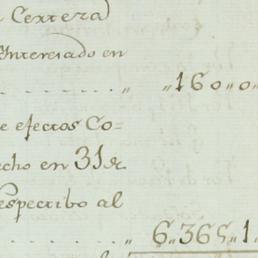 Certeza
Interesado en
........ „ „160„0„
e efectos Co=
cho en 31 de
espectibo al
........ „ 6„365„1„